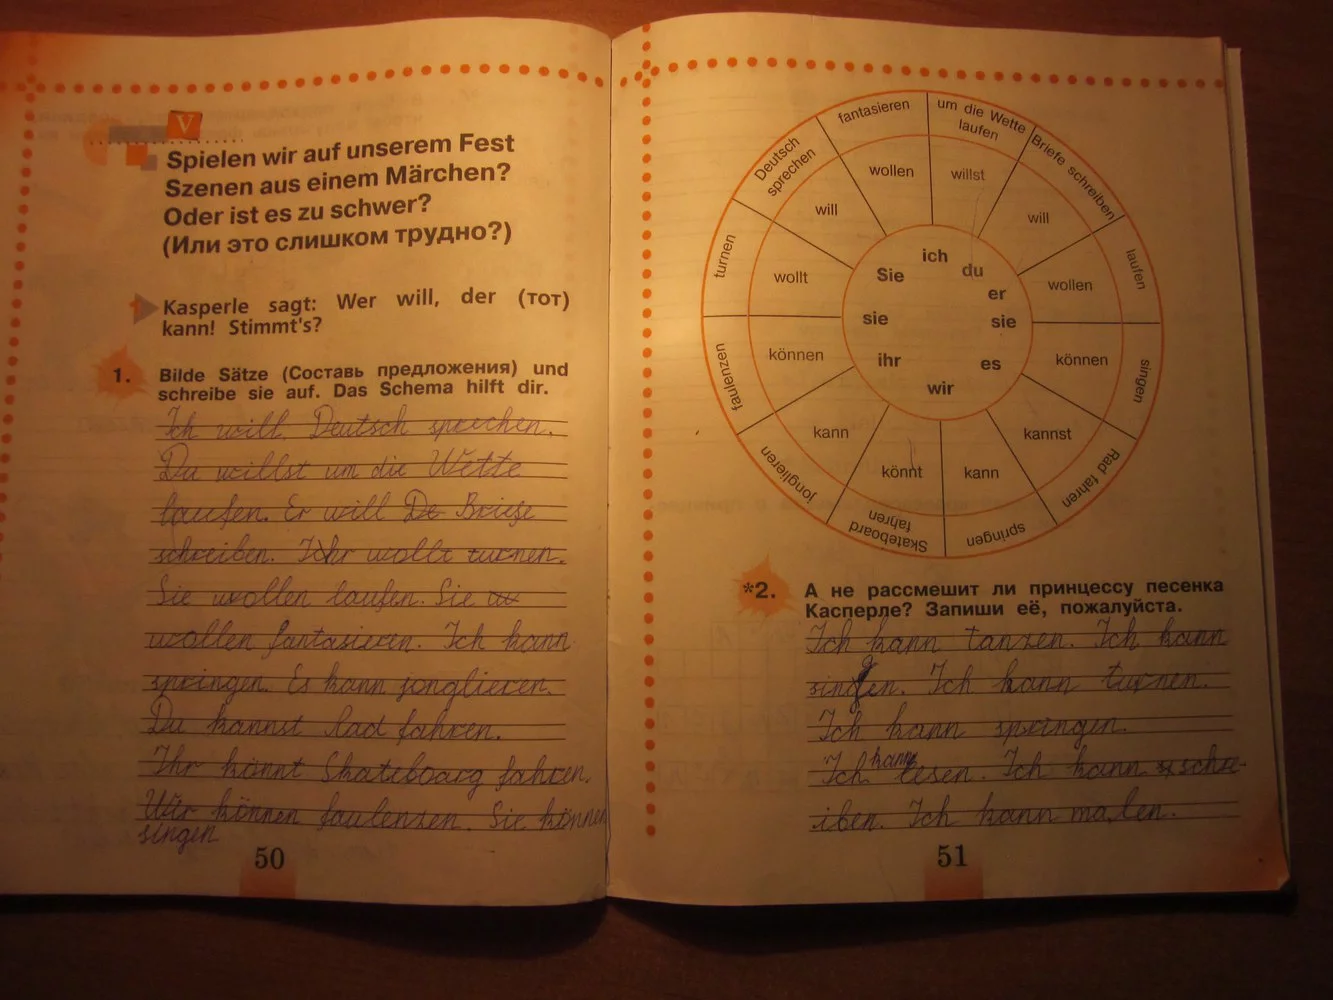 V
Spielen wir auf unserem Fest
Szenen aus einem Märchen?
Oder ist es zu schwer?
(Или это слишком трудно?)
1 Kasperle sagt: Wer will, der (тот)
kann! Stimmt's?
1. Bilde Sätze (Составь предложения) und
schreibe sie auf. Das Schema hilft dir.
Ich will Deutsch sprechen.
Du willst um die Wette
laufen. Er will Briefe
schreiben. Ihr wollt turnen.
Sie wollen laufen. Sie
wollen fantasieren. Ich kann
springen. Es kann jonglieren.
Du kannst Rad fahren.
Ihr könnt Skateboarg fahren.
Wir können faulenzen. Sie können
singen
50
fantasieren
um die Wette
laufen
Briefe schreiben
laufen
singen
Rad fahren
springen
Skateboard
fahren
jonglieren
faulenzen
turnen
Deutsch
sprechen
wollen
willst
will
wollen
können
kannst
kann
könnt
kann
können
wollt
will
ich
du
er
sie
es
wir
ihr
sie
Sie
*2. А не рассмешит ли принцессу песенка
Касперле? Запиши её, пожалуйста.
Ich kann tanzen. Ich kann
singen. Ich kann turnen.
Ich kann springen.
Ich kann lesen. Ich kann schre-
iben. Ich kann malen.
51